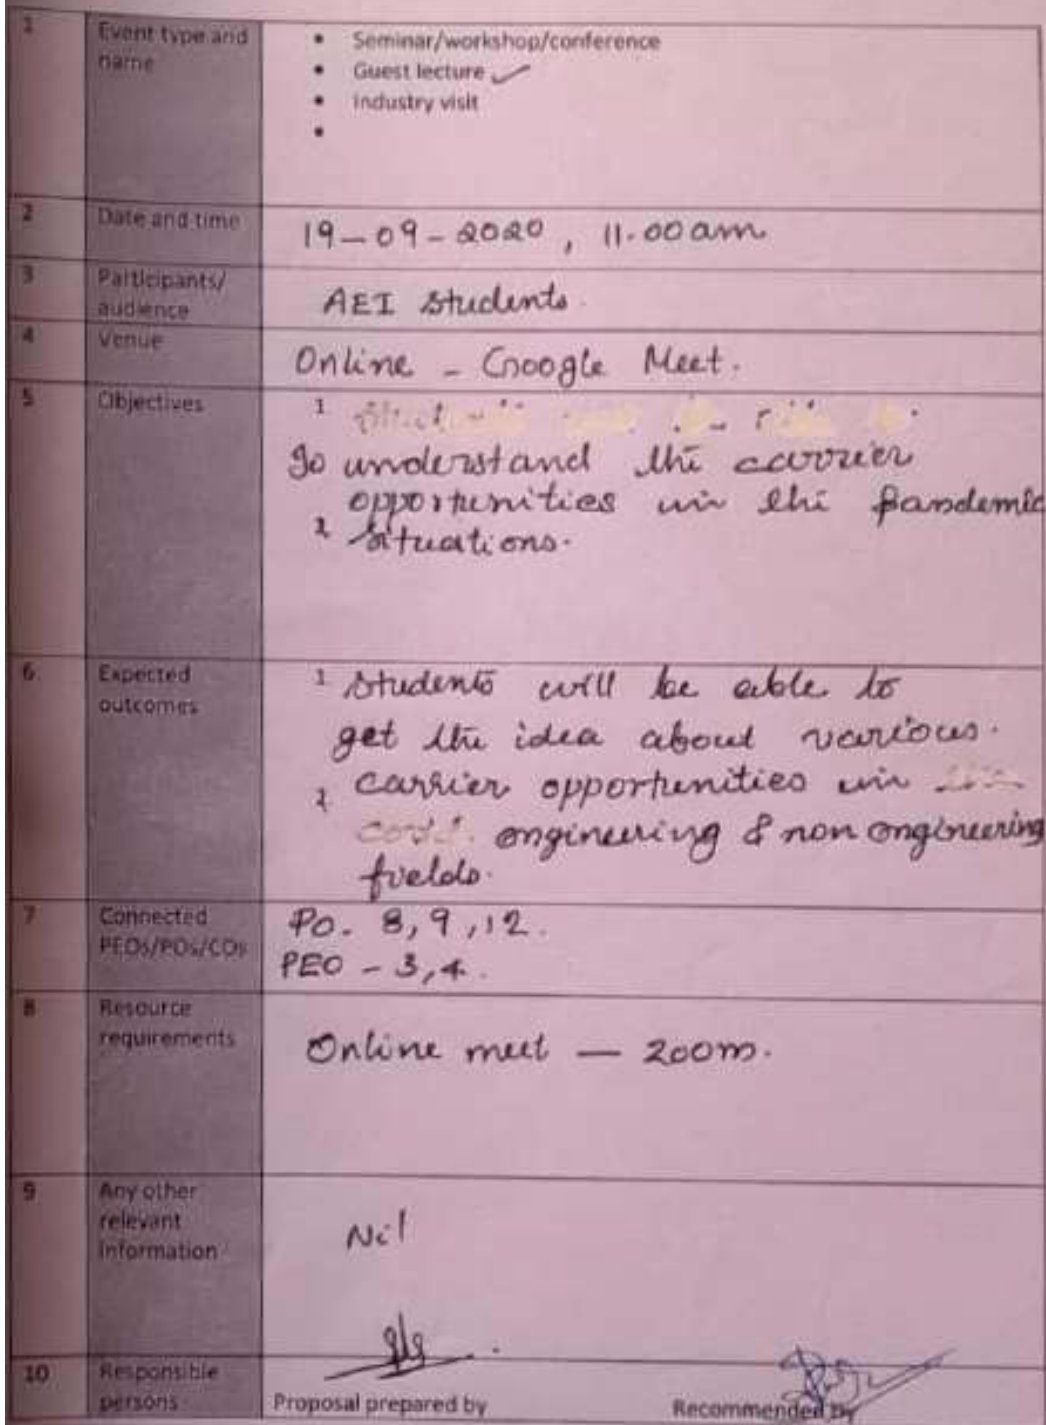 1 Event type and name
• Seminar/workshop/conference
• Guest lecture
• Industry visit
•
2 Date and time 19-09-2020, 11.00am
3 Participants/ audience AEI Students.
4 Venue Online - Google Meet.
5 Objectives 1
To understand the carrier
opportunities in the pandemic
2 situations.
6. Expected outcomes 1 Students will be able to
get the idea about various.
2 carrier opportunities in
engineering & non engineering
fields.
7 Connected PEOs/POs/COs PO. 8, 9, 12.
PEO - 3, 4.
8 Resource requirements Online meet — zoom.
9 Any other relevant information Nil
10 Responsible persons Proposal prepared by Recommended by